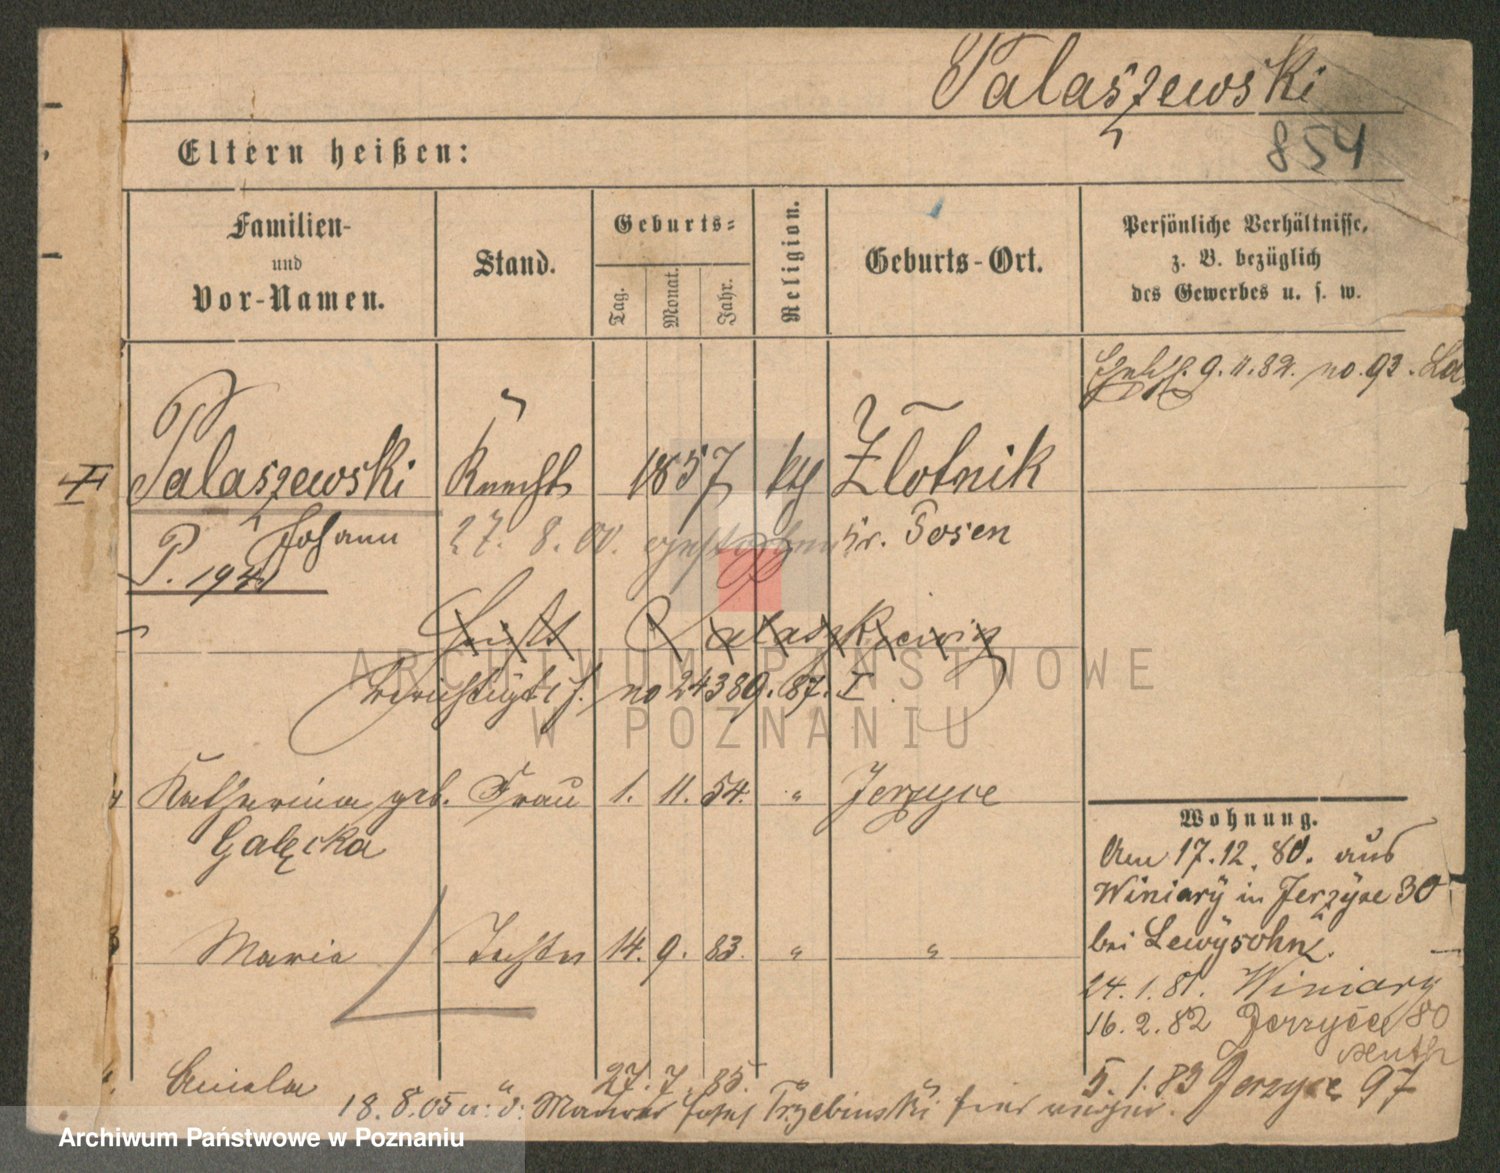 Palaszewski
854
Eltern heißen:
Familien- und Vor-Namen.
Stand.
Geburts-
Tag.
Monat.
Jahr.
Religion.
Geburts-Ort.
Persönliche Verhältnisse, z. B. bezüglich des Gewerbes u. s. w.
9.11.82. no. 93.
Palaszewski Knecht 1857 kth Złotnik
Johann 27. 8. 00. gestorben Kr. Posen
P. 1941
heißt Palaszkiewicz
Berichtigt l. no 24389. 87. I
Katharina geb. Frau 1. 11. 54. " Jerzyce
Gałęcka
Wohnung.
Am 17.12.80. aus
Winiarÿ in Jerzÿce 30
bei Lewÿsohn.
Maria Tochter 14. 9. 83. " "
24. 1. 81. Winiary
16. 2. 82 Jerzyce 80
5. 1. 83 Jerzyce 97
Aniela " 27. 7. 85.
18. 8. 05 Maurer Josef Trzebinski
ARCHIWUM PAŃSTWOWE
W POZNANIU
Archiwum Państwowe w Poznaniu